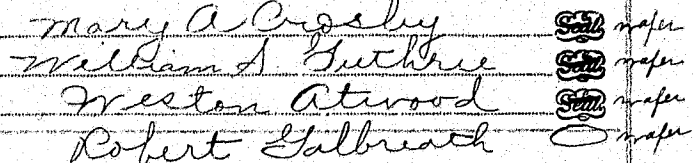 Mary A Crosby Seal wafer
William S Guthrie Seal wafer
Weston Atwood Seal wafer
Robert Galbreath wafer